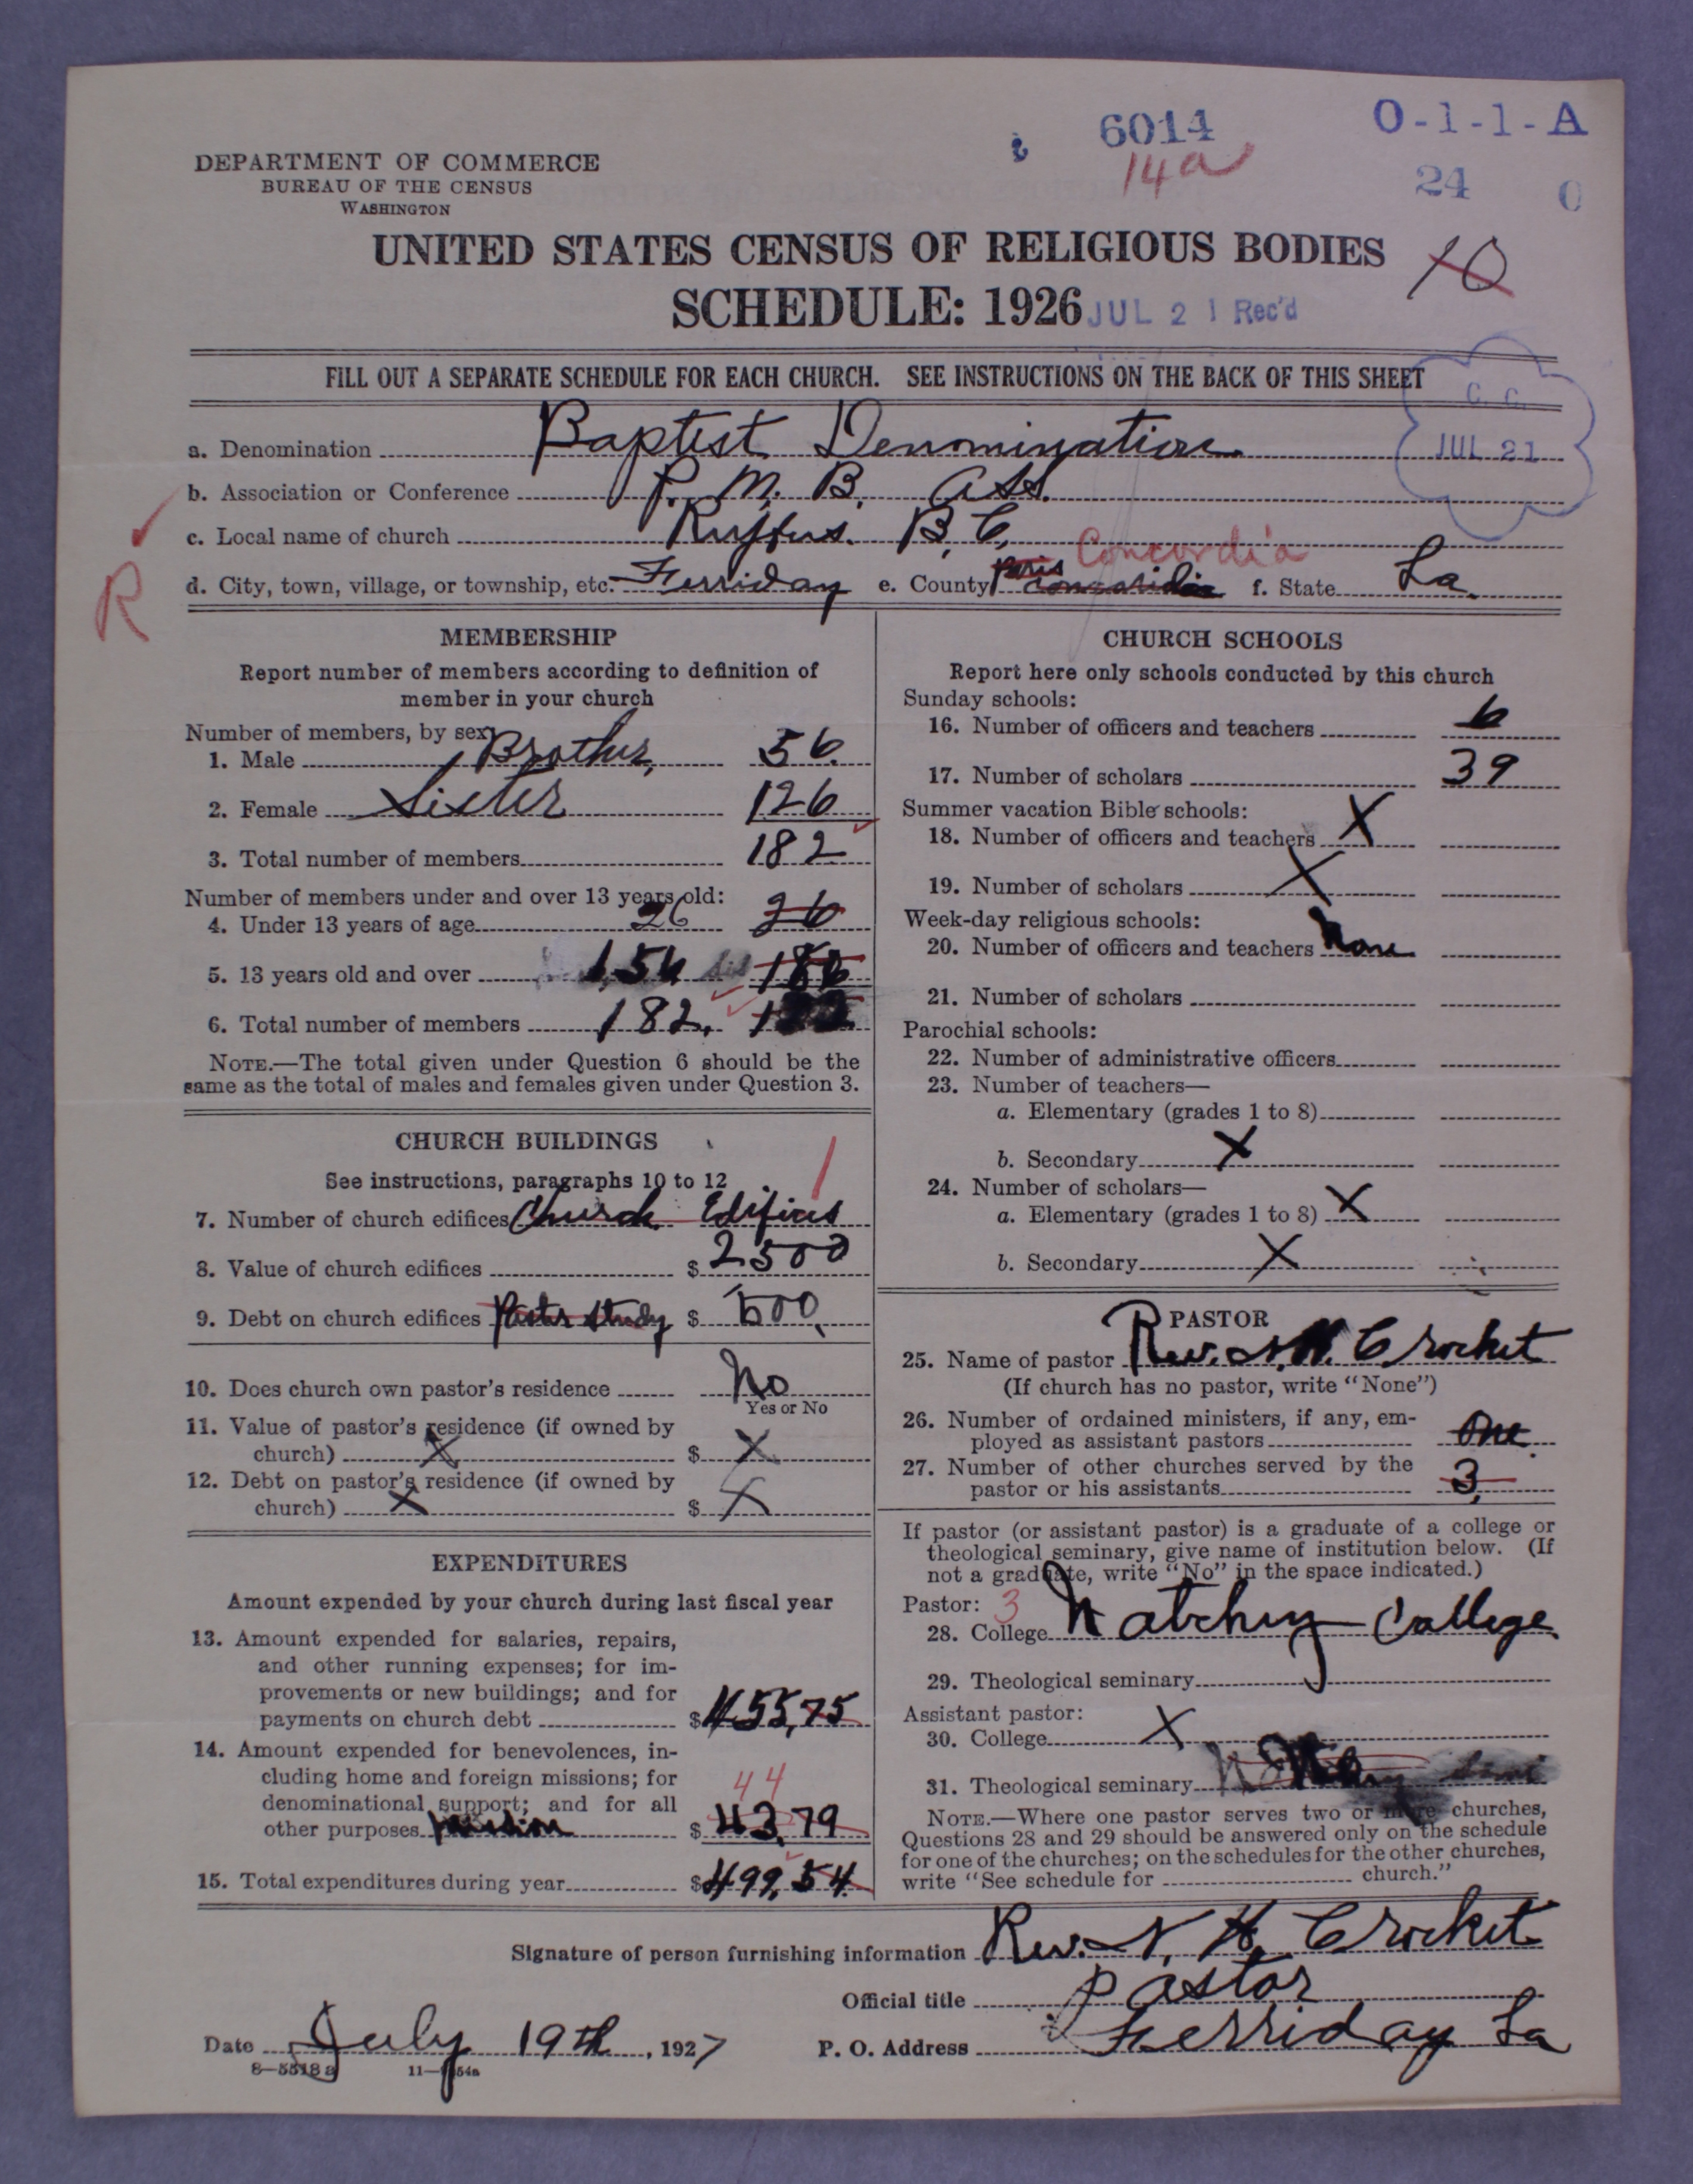 6014
O-1-1-A
14a
24 0
DEPARTMENT OF COMMERCE
BUREAU OF THE CENSUS
WASHINGTON
UNITED STATES CENSUS OF RELIGIOUS BODIES
10
SCHEDULE: 1926
JUL 21 Rec'd
FILL OUT A SEPARATE SCHEDULE FOR EACH CHURCH. SEE INSTRUCTIONS ON THE BACK OF THIS SHEET
C. C.
JUL 21
a. Denomination Baptist Denomination
b. Association or Conference P. M. B. Ass.
c. Local name of church Ruffus. B. C.
Concordia
R
d. City, town, village, or township, etc. Ferriday e. County Paris Concordia f. State La.
MEMBERSHIP
Report number of members according to definition of
member in your church
Number of members, by sex
1. Male Brother, 56.
2. Female Sister 126
3. Total number of members 182
Number of members under and over 13 years old:
4. Under 13 years of age 26 26
5. 13 years old and over 156
6. Total number of members 182.
NOTE.—The total given under Question 6 should be the
same as the total of males and females given under Question 3.
CHURCH BUILDINGS
See instructions, paragraphs 10 to 12
1
7. Number of church edifices Church Edifices
8. Value of church edifices $ 2500
9. Debt on church edifices Pastor Study $ 500.
10. Does church own pastor's residence No
Yes or No
11. Value of pastor's residence (if owned by
church) X $ X
12. Debt on pastor's residence (if owned by
church) X $ X
EXPENDITURES
Amount expended by your church during last fiscal year
13. Amount expended for salaries, repairs,
and other running expenses; for im-
provements or new buildings; and for
payments on church debt $ 455,75
14. Amount expended for benevolences, in-
cluding home and foreign missions; for
44
denominational support; and for all
other purposes mission $ 43,79
15. Total expenditures during year $ 499,54
CHURCH SCHOOLS
Report here only schools conducted by this church
Sunday schools:
16. Number of officers and teachers 6
17. Number of scholars 39
Summer vacation Bible schools:
18. Number of officers and teachers X
19. Number of scholars X
Week-day religious schools:
20. Number of officers and teachers None
21. Number of scholars
Parochial schools:
22. Number of administrative officers
23. Number of teachers—
a. Elementary (grades 1 to 8)
b. Secondary X
24. Number of scholars—
a. Elementary (grades 1 to 8) X
b. Secondary X
PASTOR
25. Name of pastor Rev. N. H. Crocket
(If church has no pastor, write "None")
26. Number of ordained ministers, if any, em-
ployed as assistant pastors One
27. Number of other churches served by the
pastor or his assistants 3
If pastor (or assistant pastor) is a graduate of a college or
theological seminary, give name of institution below. (If
not a graduate, write "No" in the space indicated.)
Pastor: 3
28. College Natchez College
29. Theological seminary
Assistant pastor:
30. College X
31. Theological seminary No
NOTE.—Where one pastor serves two or more churches,
Questions 28 and 29 should be answered only on the schedule
for one of the churches; on the schedules for the other churches,
write "See schedule for church."
Signature of person furnishing information Rev. N. H. Crocket
Official title Pastor
Date July 19th, 1927
P. O. Address Ferriday La
8—5518 a